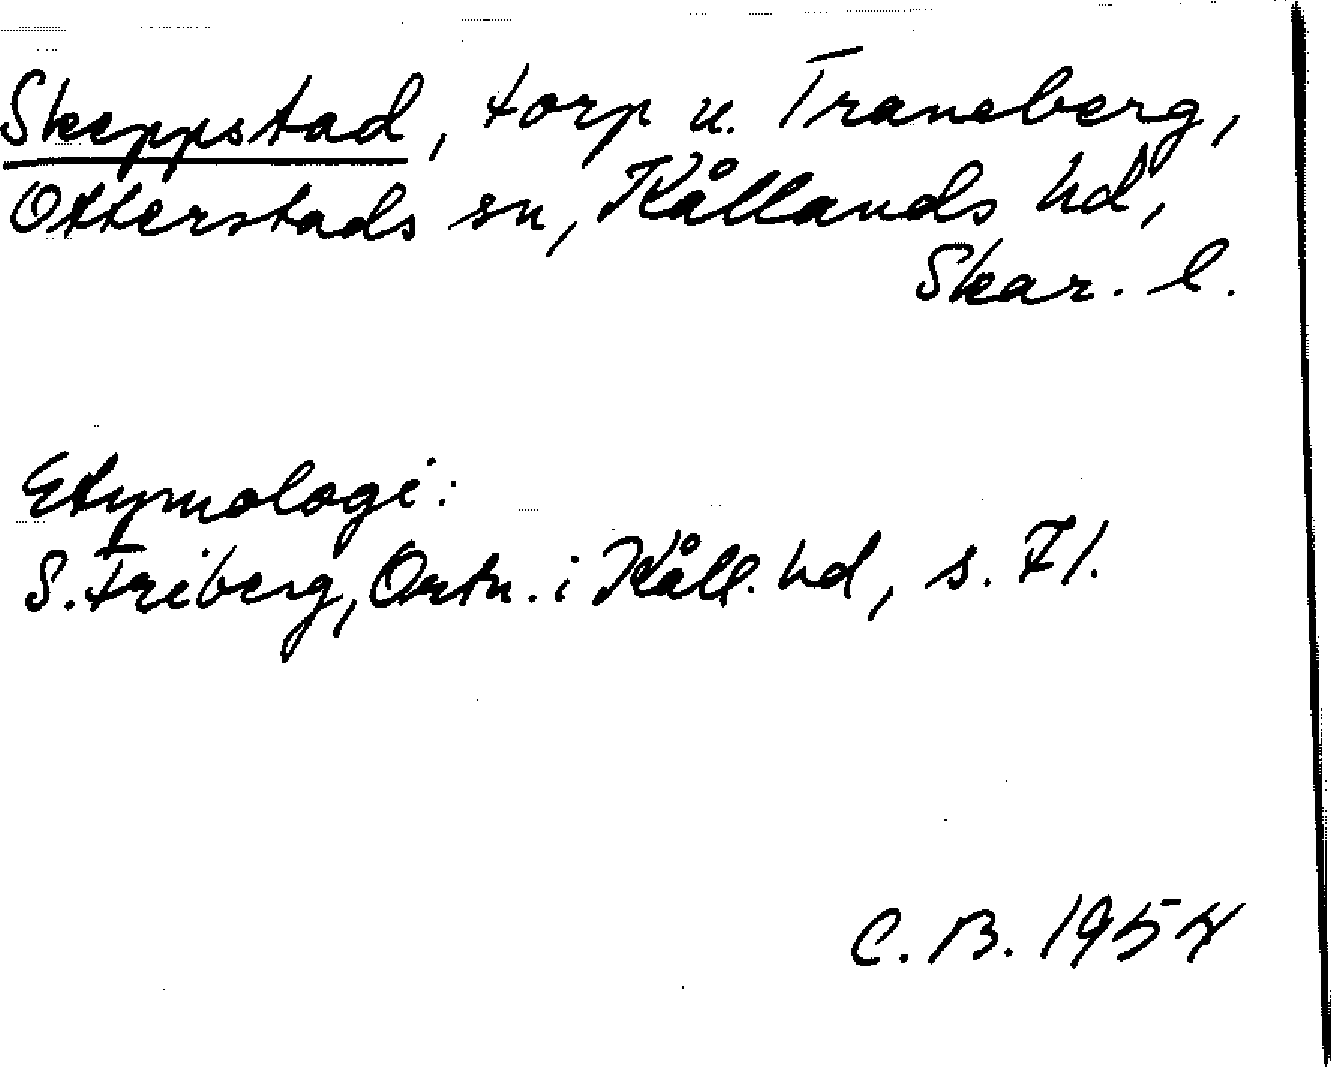 Skeppstad, torp u. Traneberg,
Otterstads sn, Kållands hd,
Skar. l.
Etymologi:
S. Friberg, Ortn. i Kåll. hd, s. 71.
C. B. 1958